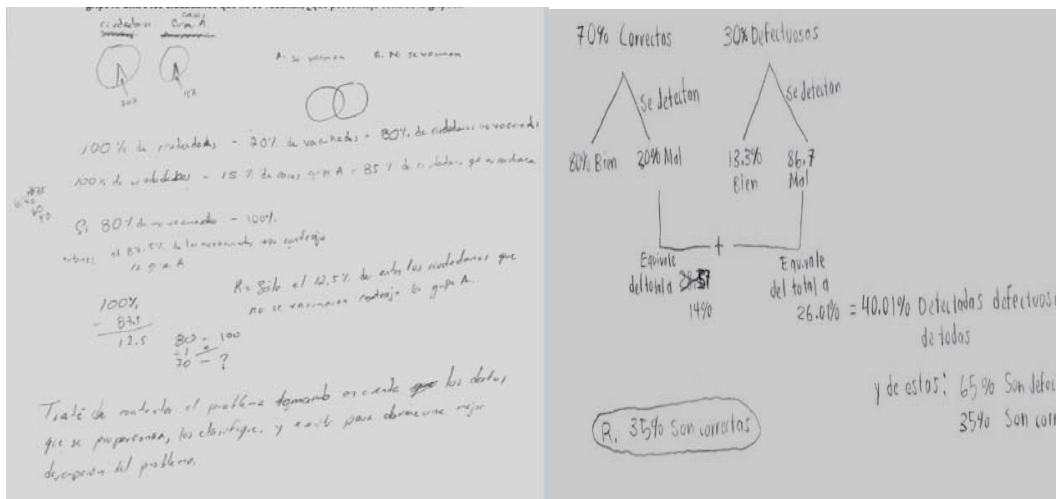 ciudadanos
casos
Gripa A
20%
15%
A. se vacunan B. No se vacunan
100% de ciudadanos - 20% de vacunados = 80% de ciudadanos no vacunados
100% de ciudadanos - 15% de casos gripa A = 85% de ciudadanos que no
Si 80% de no vacunados - 100%
entonces el 87.5% de los no vacunados no
la gripa A
R= Sólo el 12.5% de entre los ciudadanos que
no se vacunaron contrajo la gripa A.
100%
- 87.5
12.5
80 - 100
70 - ?
Traté de contestar el problema tomando en cuenta los datos,
que se proporcionan, los clasifique, y para darme una mejor
descripción del problema.
70% Correctas 30% Defectuosas
Se detectan Se detectan
80% Bien 20% Mal 13.3% Bien 86.7 Mal
+
Equivale
del total a
14%
Equivale
del total a
26.01% = 40.01% Detectadas defectuosa
de todas
y de estas: 65% Son defec
35% Son corr
R. 35% Son correctas